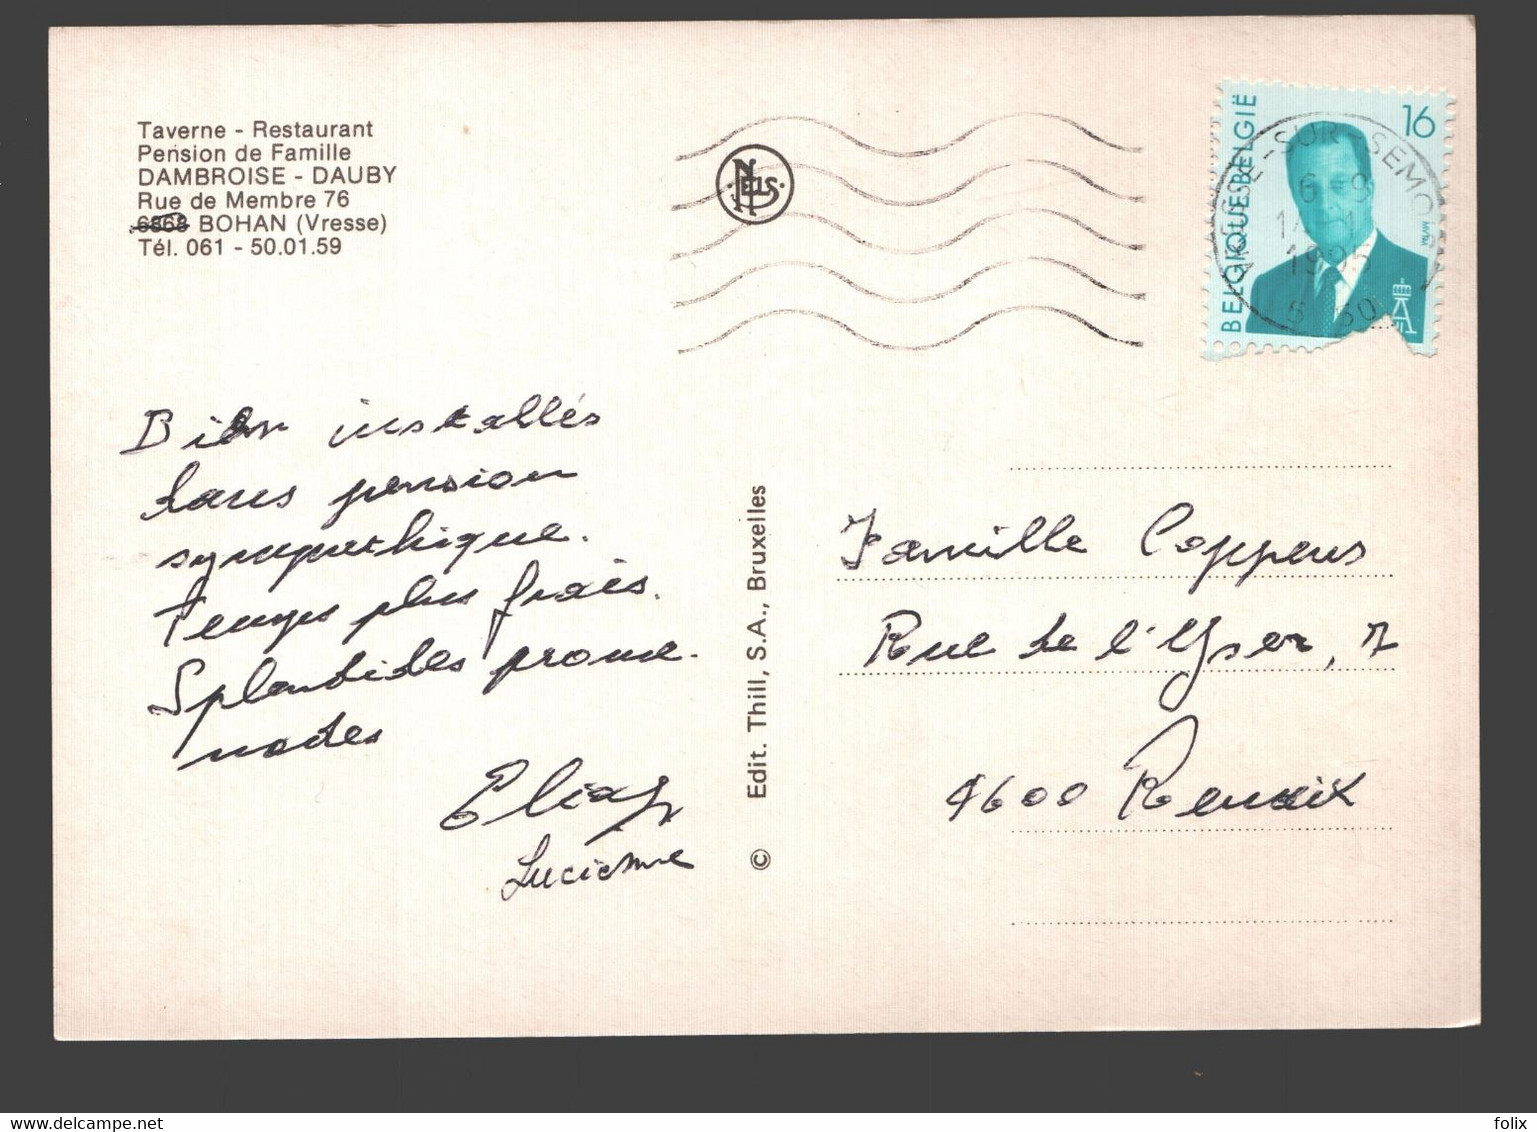 Taverne - Restaurant
Pension de Famille
DAMBROISE - DAUBY
Rue de Membre 76
6868 BOHAN (Vresse)
Tél. 061 - 50.01.59
NELS
BELGIQUE BELGIË
16
Bien installés
dans pension
sympathique.
Temps plus frais.
Splendides prome-
nades
Lucienne
© Edit. Thill, S.A., Bruxelles
Famille Coppens
Rue de l'Yser, 7
9600 Renaix
delcampe.net
folix